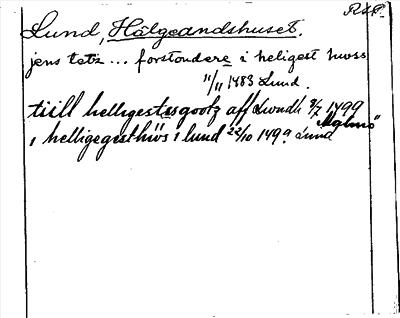 RAP.
Lund, Helgeandshuset.
jens tetz ... forstondere i heligest huoss
11/11 1483 Lund.
tiill helligestusgootz aff Lwndh 3/7 1499
Malmö
i helligegesthüs i lund 22/10 1499. Lund